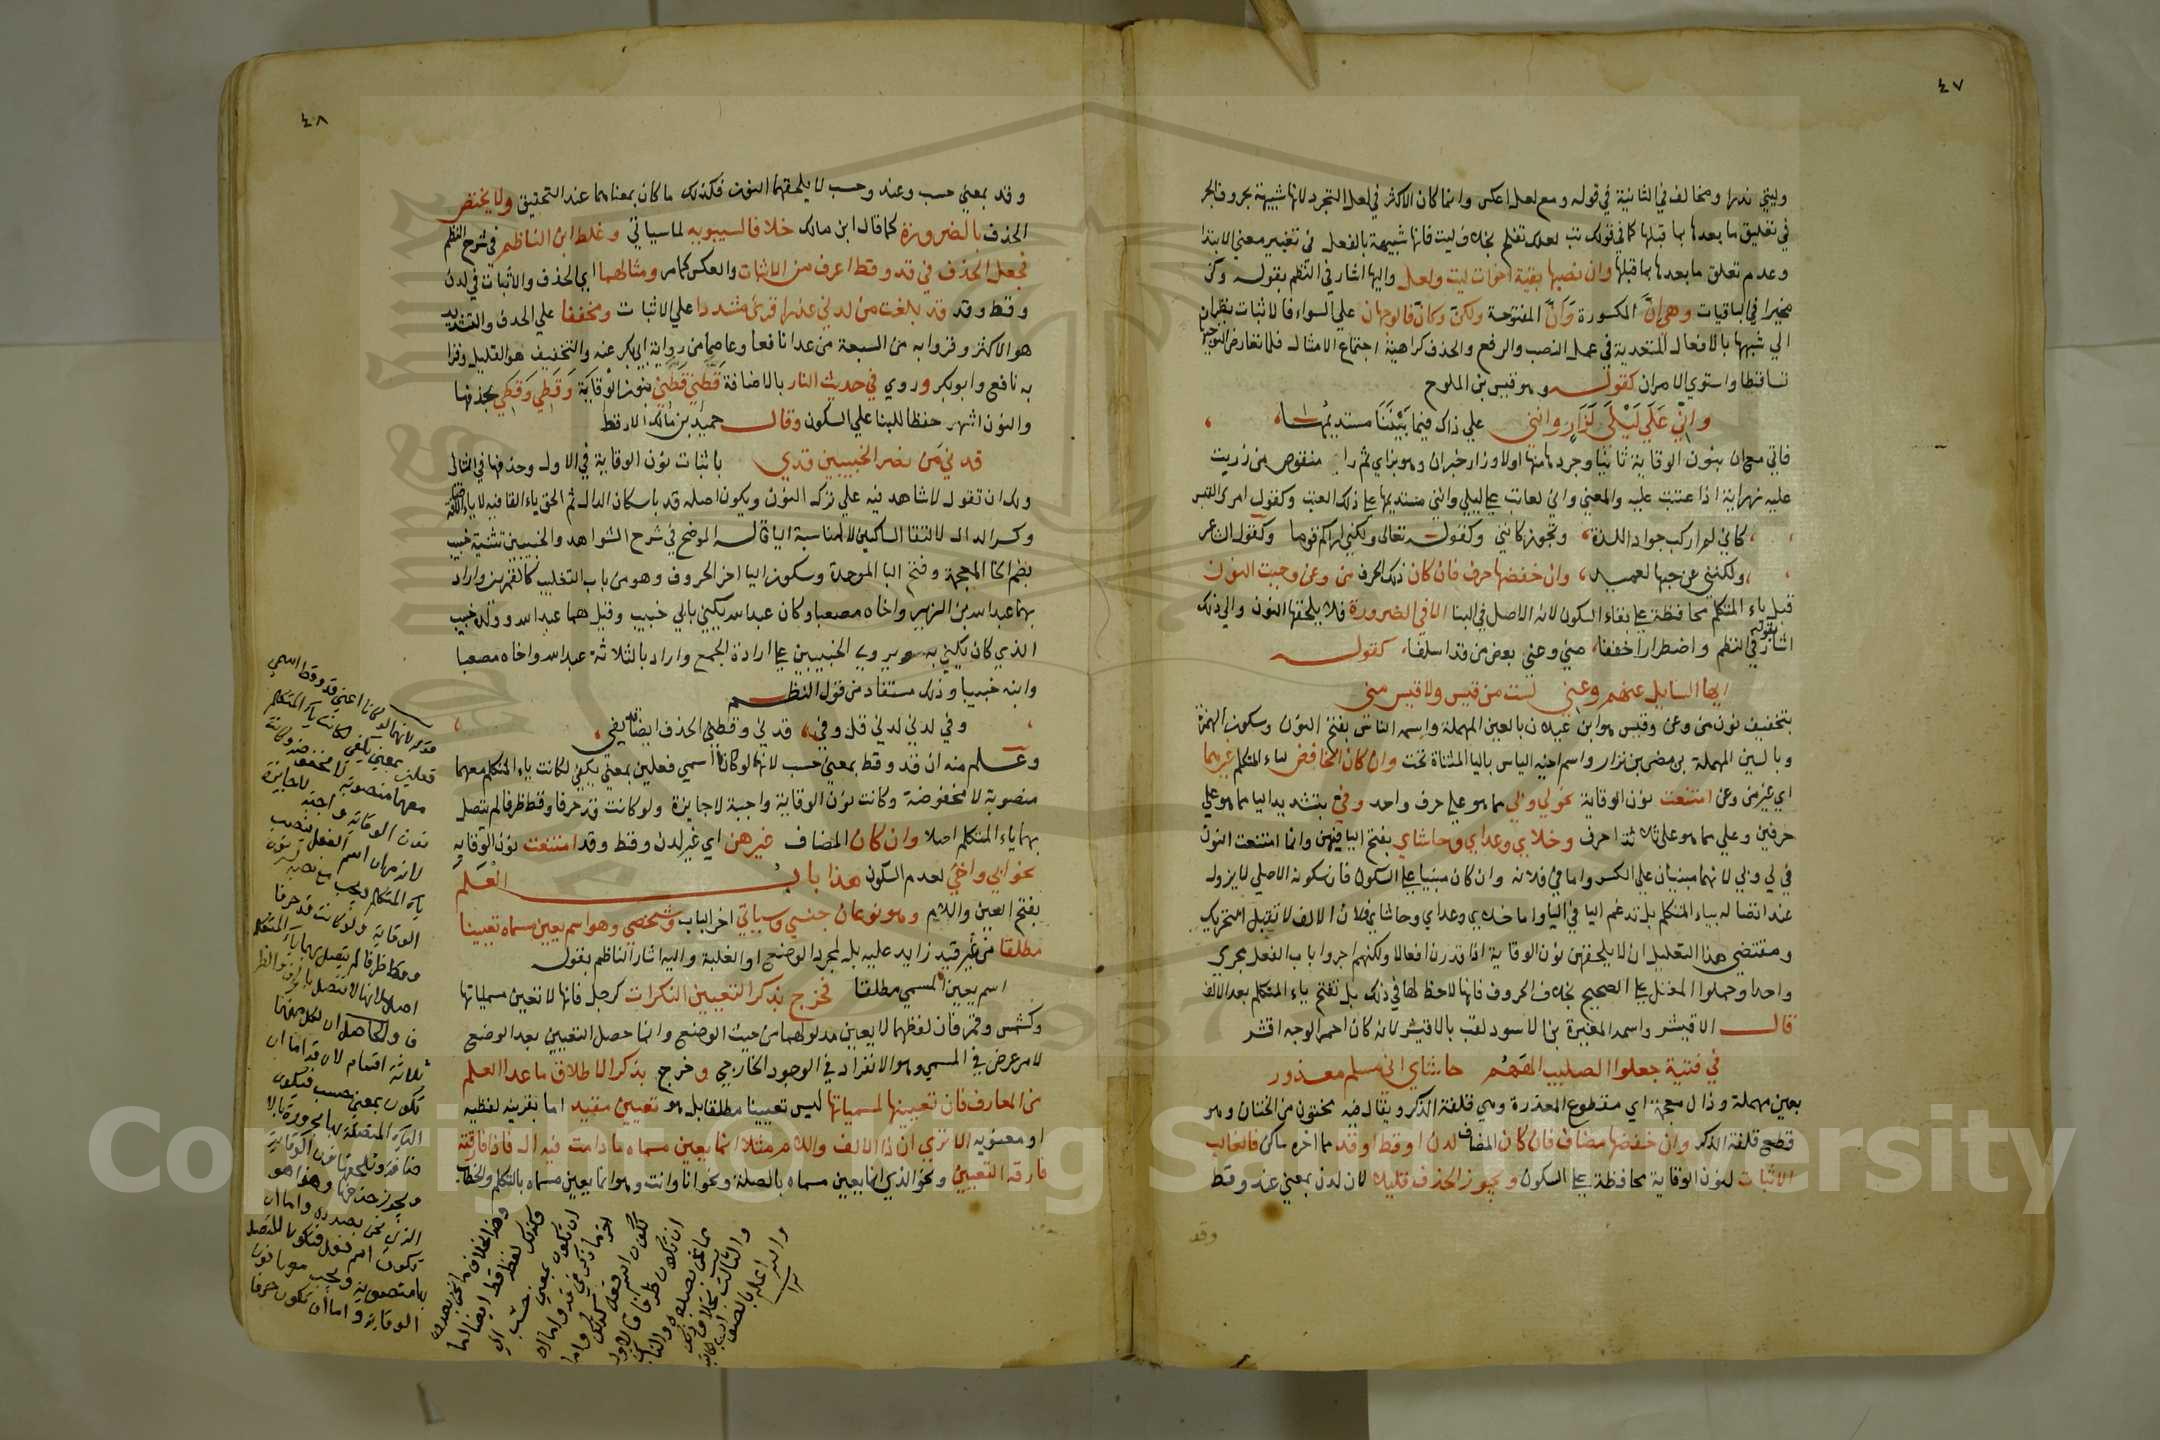 ٤٧
وليتي نذرا ومخالف في الثانية في قوله ومع لعل اعكس وانما كان الاكثر في لعل التجرد لانها شبيهة بحروف الجر
في تعليق ما بعدها بما قبلها كما في قولك تب لعلك تفلح بخلاف ليت فانها شبيهة بالفعل في تغيير معني الابتدا
وعدم تعلق ما بعدها بما قبلها وان نصبها بقية اخوات ليت ولعل واليها اشار في النظم بقوله وكن
مخيرا في الباقيات وهي انّ المكسورة وَأنّ المفتوحة ولكنّ وكأنّ فالوجهان علي السواء فالاثبات بنظران
الي شبهها بالافعال المتعدية في عمل النصب والرفع والحذف كراهية اجتماع الامثال فلما تعارض الموجبان
تساقطا واستوي الامران كقوله وهو قيس بن الملوح
واني عَلَي لَيْلَي لَزَارٍ وانني علي ذاك فيما بَيْنَنَا مستديمُها
فاتي مع ان بنون الوقاية ثانيا وجردها منها اولا وزار خبر ان وهو بزاي ثم را منقوص من زريت
عليه زراية اذا عتبت عليه والمعني واني لعاتب علي ليلي وانني مستديمها علي ذلك العتب وكقول امري القيس
كاني لم اركب جوادا للذة وتجوز كانني وكقوله تعالي ولكني اراكم قوما وكقول الشاعر
ولكنني عن حبها لعميد وان خفضها حرف فان كان ذلك الحرف من وعن وجبت النون
قبل ياء المتكلم محافظة علي بقاء السكون لانه الاصل في البنا الا في الضرورة فلا يلحقها النون والي ذلك
اشار بقوله في النظم واضطرارا خففا مني وعني بعض من قد اسلفا كقوله
ايها السايل عنهم وعني لست من قيس ولا قيس مني
بتخفيف نون من وعن وقيس هو ابن عيلان بالعين المهملة واسمه الناس بفتح النون وسكون الهمزة
وبالسين المهملة بن مضر بن نزار واسم اخيه الياس باليا المثناة تحت وان كان الخافض لياء المتكلم غيرهما
اي غير من وعن امتنعت نون الوقاية نحو لي وبي مما هو علي حرف واحد وفيّ بتشديد اليا مما هو علي
حرفين وعلي مما هو علي ثلاثة احرف وخلاي وعداي وحاشاي بفتح اليا فيهن وانما امتنعت النون
في لي وبي لانهما مبنيان علي الكسر واما في فلانه وان كان مبنيا علي السكون فان سكونه الاصلي لا يزول
عند اتصاله بياء المتكلم بل تدغم اليا في اليا واما خلاي وعداي وحاشاي فلان الالف لا تقبل التحريك
ومقتضي هذا التعليل ان لا يلحقهن نون الوقاية اذا قدرن افعالا ولكنهم اجروا باب الفعل مجري
واحدا وحملوا المعتل علي الصحيح بخلاف الحروف فانها لا حظ لها في ذلك بل تفتح ياء المتكلم بعد الالف
قال الاقيشر واسمه المغيرة بن الاسود لقب بالاقيشر لانه كان احمر الوجه اقشر
في فتية جعلوا الصليب الههم حاشاي اني مسلم معذور
بعين مهملة وذال معجمة اي مقطوع المعذرة وهي قلفة الذكر ويقال فيه مختون من الختان وهو
قطع قلفة الذكر وان خفضها مضاف فان كان المضاف لدن او قط او قد مما اخره ساكن فالغالب
الاثبات لنون الوقاية محافظة علي السكون ويجوز الحذف قليلا لان لدن بمعني عند وقط
وقد
٤٨
وقد بمعني حسب وعند وحسب لا يلحقهما النون فكذلك ما كان بمعناهما عند التحقيق ولا يختص
الحذف بالضرورة كما قال ابن مالك خلافا لسيبويه لما سياتي وغلط ابن الناظم في شرح النظم
فجعل الحذف في قد وقط اعرف من الاثبات والعكس كما مر ومثالهما اي الحذف والاثبات في لدن
وقط وقد قد بلغت من لدني عذرا قرئ مشددا علي الاثبات ومخففا علي الحذف والتشديد
هو الاكثر وقرا به من السبعة من عدا نافعا وعاصما من رواية ابي بكر عنه والتخفيف هو القليل وقرا
به نافع وابو بكر وروي في حديث النار بالاضافة قَطْنِي قَطْنِي بنون الوقاية وَقَطِي وَقَطِي بحذفها
والنون اشهر حفظا للبنا علي السكون وقال حميد بن مالك الارقط
قدني من نصر الخبيبين قدي باثبات نون الوقاية في الاول وحذفها في الثاني
ولك ان تقول لا شاهد فيه علي ترك النون ويكون اصله قد باسكان الدال ثم الحق ياء القافية لا ياء الاضافة
وكسر الدال لالتقا الساكنين لا لمناسبة اليا قاله الموضح في شرح الشواهد والخبيبين تثنية خبيب
بضم الخا المعجمة وفتح البا الموحدة وسكون اليا اخر الحروف وهو من باب التغليب كالقمرين واراد
بهما عبد الله بن الزبير واخاه مصعبا وكان عبد الله يكني بابي خبيب وقيل هما عبد الله وولده خبيب
الذي كان يكني به ويروي الخبيبين علي ارادة الجمع واراد بالثلاثة عبد الله واخاه مصعبا
وابنه خبيبا وذلك مستفاد من قول النظم
وفي لدني لدني قل وفي قدني وقطني الحذف ايضا قد يفي
وعلم منه ان قد وقط بمعني حسب لانهما لو كانا اسمي فعلين بمعني يكفي لكانت ياء المتكلم معهما
منصوبة لا مخفوضة وكانت نون الوقاية واجبة لا جايزة ولو كانت قد حرفا وقط ظرفا لم يتصل
بهما ياء المتكلم اصلا وان كان المضاف غيرهن اي غير لدن وقط وقد امتنعت نون الوقاية
نحو ابي واخي لعدم السكون هذا باب العَلَم
بفتح العين واللام وهو نوعان جنسي وسياتي اخر الباب وشخصي وهو اسم يعين مسماه تعيينا
مطلقا من غير قيد زايد عليه بل لمجرد الوضع او الغلبة واليه اشار الناظم بقوله
اسم يعين المسمي مطلقا فخرج بذكر التعيين النكرات كرجل فانها لا تعين مسمياتها
وكشمس وقمر فان لفظهما لا يعين مدلولهما من حيث الوضع وانما حصل التعيين بعد الوضع
لامر عرض في المسمي وهو الانفراد في الوجود الخارجي وخرج بذكر الاطلاق ما عدا العلم
من المعارف فان تعيينها لمسمياتها ليس تعيينا مطلقا بل هو تعيين مقيد اما بقرينة لفظيه
او معنويه الا تري ان ذا الالف واللام مثلا انما يعين مسماه ما دامت فيه ال فاذا فارقته
فارقه التعيين ونحو الذي انما يعين مسماه بالصلة ونحو انا وانت وهو انما يعين مسماه بالتكلم والخطاب
لانهما لو كانا اعني قد وقط اسمي
فعلين بمعني يكفي لكانت ياء المتكلم
معها منصوبة لا مخفوضة وكانت
نون الوقاية واجبة لا جايزة
لانه مهما ان اسم الفعل ينصب
ياء المتكلم يجب مع نصبه نون
الوقاية ولو كانت قد حرفا
وقط ظرفا لم يتصل بها ياء المتكلم
والحاصل ان لكل منهما
ثلاثة اقسام لان قد اما ان
تكون بمعني حسب فيكون
الياء المتصلة بها مجرورة بالا
ضافة وتلحقها نون الوقاية
ويجوز حذفها وهذا هو
الذي نحن بصدده واما ان
تكون اسم فعل فتكون المتصل
بها منصوبة ويجب معها نون
الوقاية واما ان تكون حرفا
وكذلك لفظ قط ايضا لها
ان تكون بمعني حسب
والله اعلم بالصواب
Copyright © King Saud University
1957